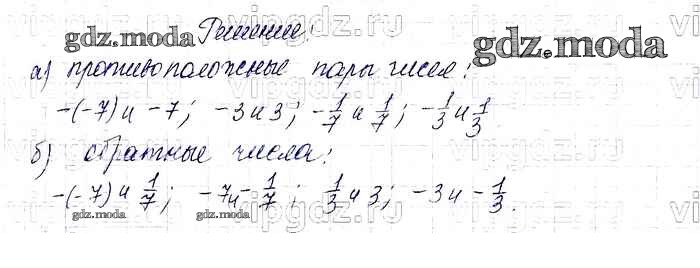 Решение:
а) противоположные пары чисел:
-(-7) и -7; -3 и 3; -1/7 и 1/7; -1/3 и 1/3.
б) обратные числа:
-(-7) и 1/7; -7 и -1/7; 1/3 и 3; -3 и -1/3.
gdz.moda
gdz.moda
gdz.moda
gdz.moda
vipgdz.ru